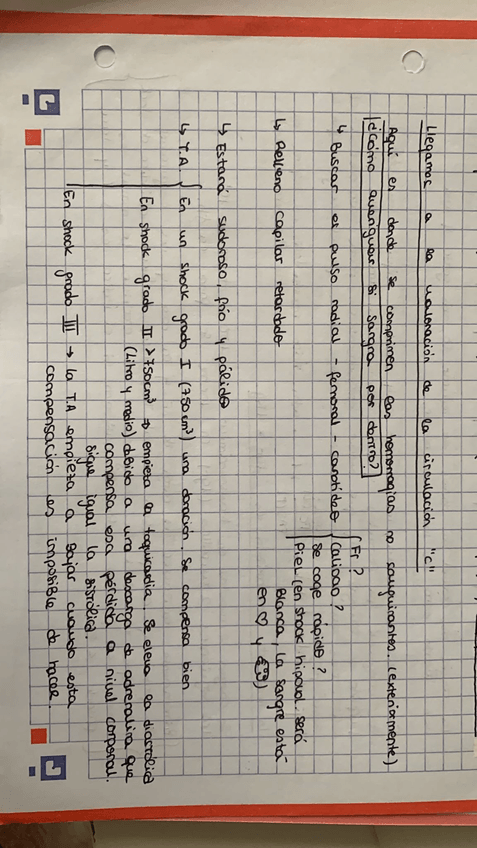 Llegamos a la valoración de la circulación "c"
Aquí es donde se comprimen las hemorragias no sanguinantes. (exteriormente)
¿Cómo averiguar si sangra por dentro?
↳ Buscar el pulso radial - femoral - carotídeo { Fr?
Calidad?
Se coge rápido?
Piel (en shock hipovol. será
blanca, la sangre está
en ♡ y
↳ Relleno capilar retardado
↳ Estará sudoroso, frío y pálido
↳ T.A. { En un shock grado I (750 cm³) una donación. Se compensa bien
En shock grado II >750cm³ → empieza la taquicardia. Se eleva la diastólica
(litro y medio) debido a una descarga de adrenalina que
compensa esa pérdida a nivel corporal.
Sigue igual la sistólica.
En shock grado III → la T.A empieza a bajar cuando esta
compensación es imposible de hacer.